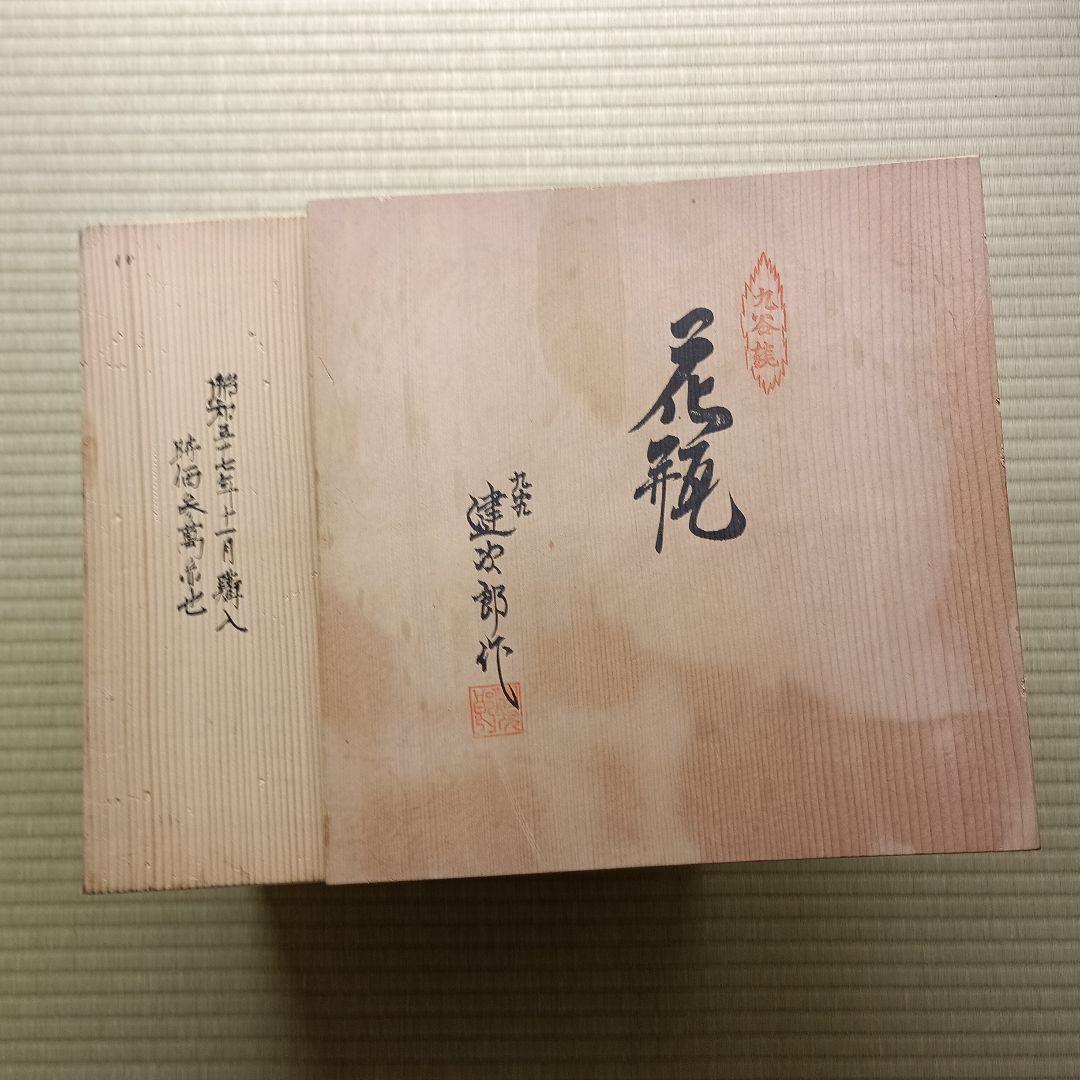 九谷焼
花瓶
九谷
健次郎作
昭和五十七年十一月購入
時価参萬円也